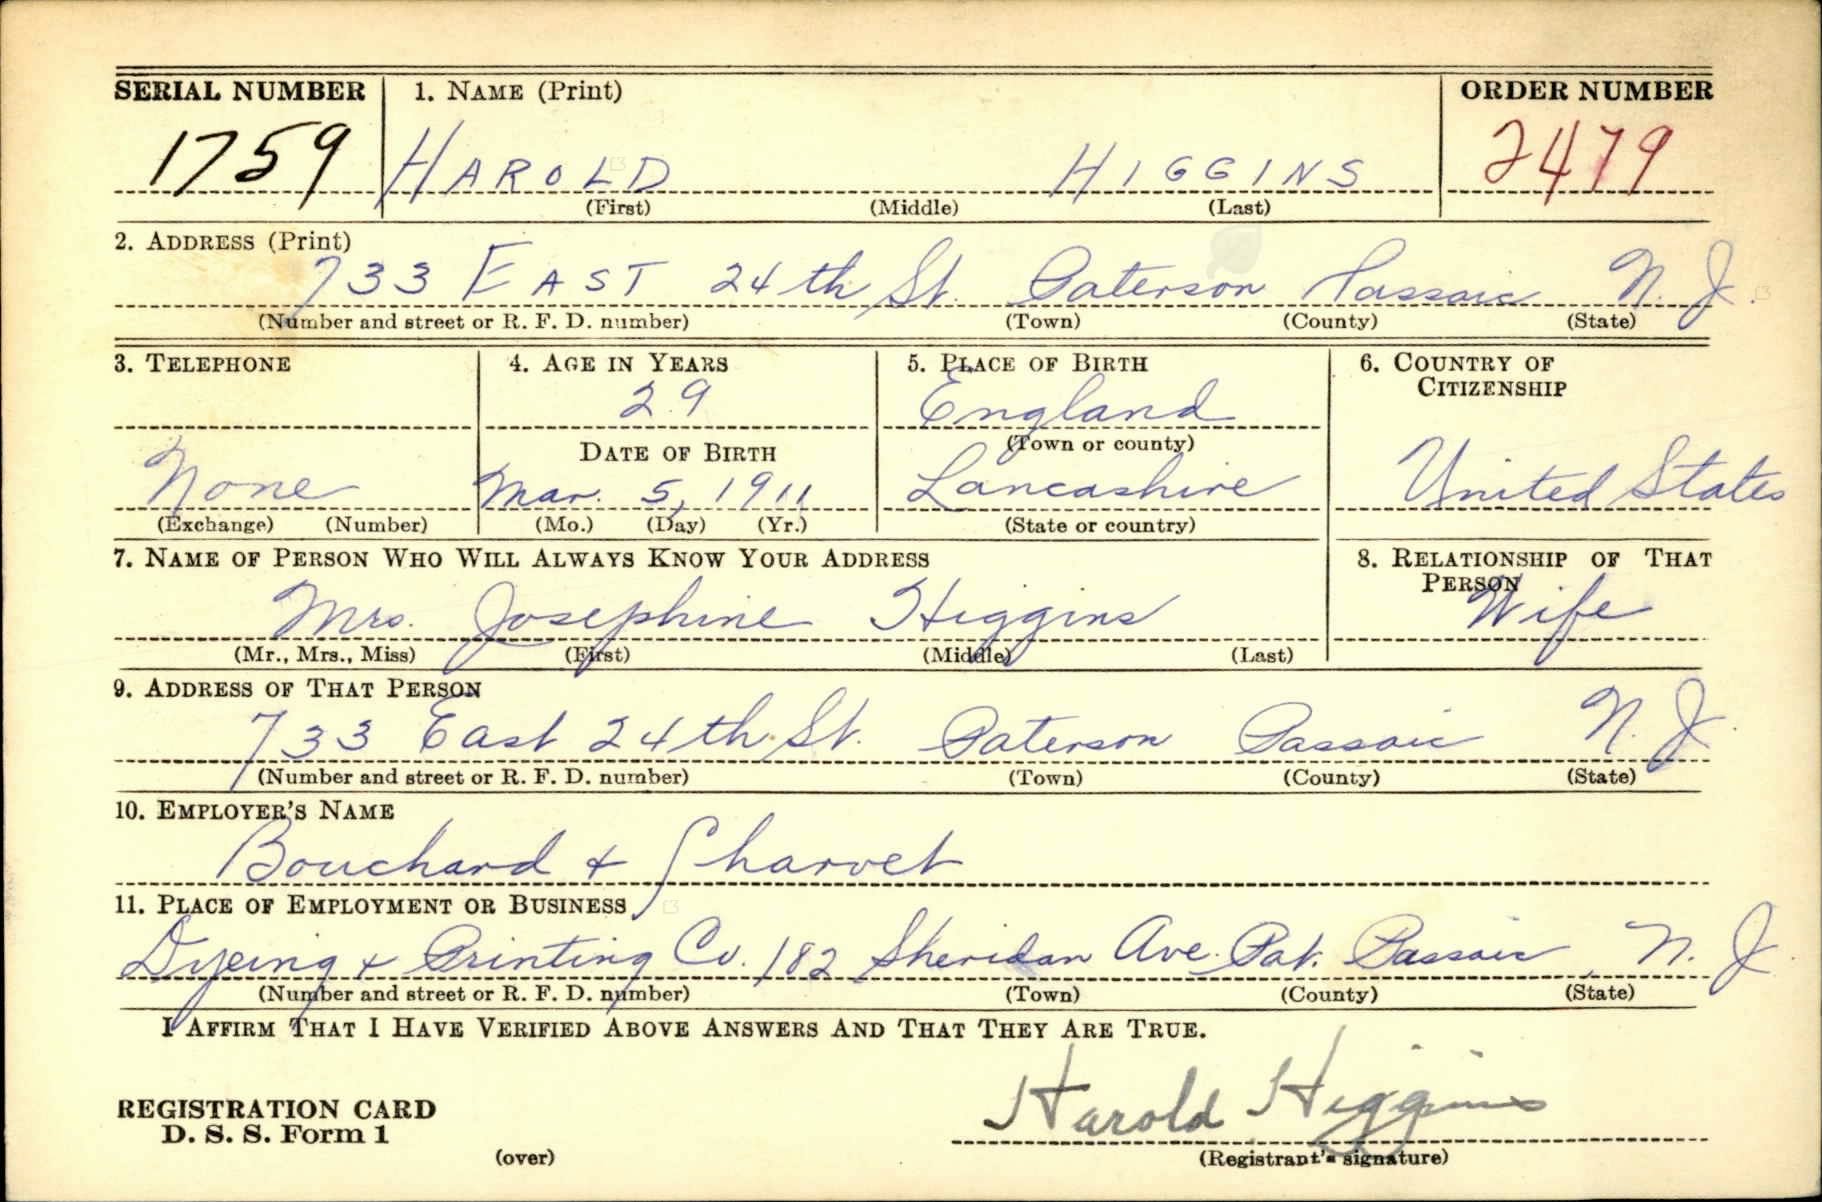 SERIAL NUMBER 1. NAME (Print) ORDER NUMBER
1759 HAROLD HIGGINS 2479
(First) (Middle) (Last)
2. ADDRESS (Print)
733 EAST 24th St. Paterson Passaic N. J.
(Number and street or R. F. D. number) (Town) (County) (State)
3. TELEPHONE 4. AGE IN YEARS 5. PLACE OF BIRTH 6. COUNTRY OF
CITIZENSHIP
29 England
DATE OF BIRTH (Town or county)
None Mar. 5, 1911 Lancashire United States
(Exchange) (Number) (Mo.) (Day) (Yr.) (State or country)
7. NAME OF PERSON WHO WILL ALWAYS KNOW YOUR ADDRESS 8. RELATIONSHIP OF THAT
PERSON
Mrs. Josephine Higgins Wife
(Mr., Mrs., Miss) (First) (Middle) (Last)
9. ADDRESS OF THAT PERSON
733 East 24th St. Paterson Passaic N. J.
(Number and street or R. F. D. number) (Town) (County) (State)
10. EMPLOYER'S NAME
Bouchard + Charvet
11. PLACE OF EMPLOYMENT OR BUSINESS
Dyeing + Printing Co. 182 Sheridan Ave. Pat. Passaic, N. J.
(Number and street or R. F. D. number) (Town) (County) (State)
I AFFIRM THAT I HAVE VERIFIED ABOVE ANSWERS AND THAT THEY ARE TRUE.
Harold Higgins
REGISTRATION CARD
D. S. S. Form 1
(over) (Registrant's signature)